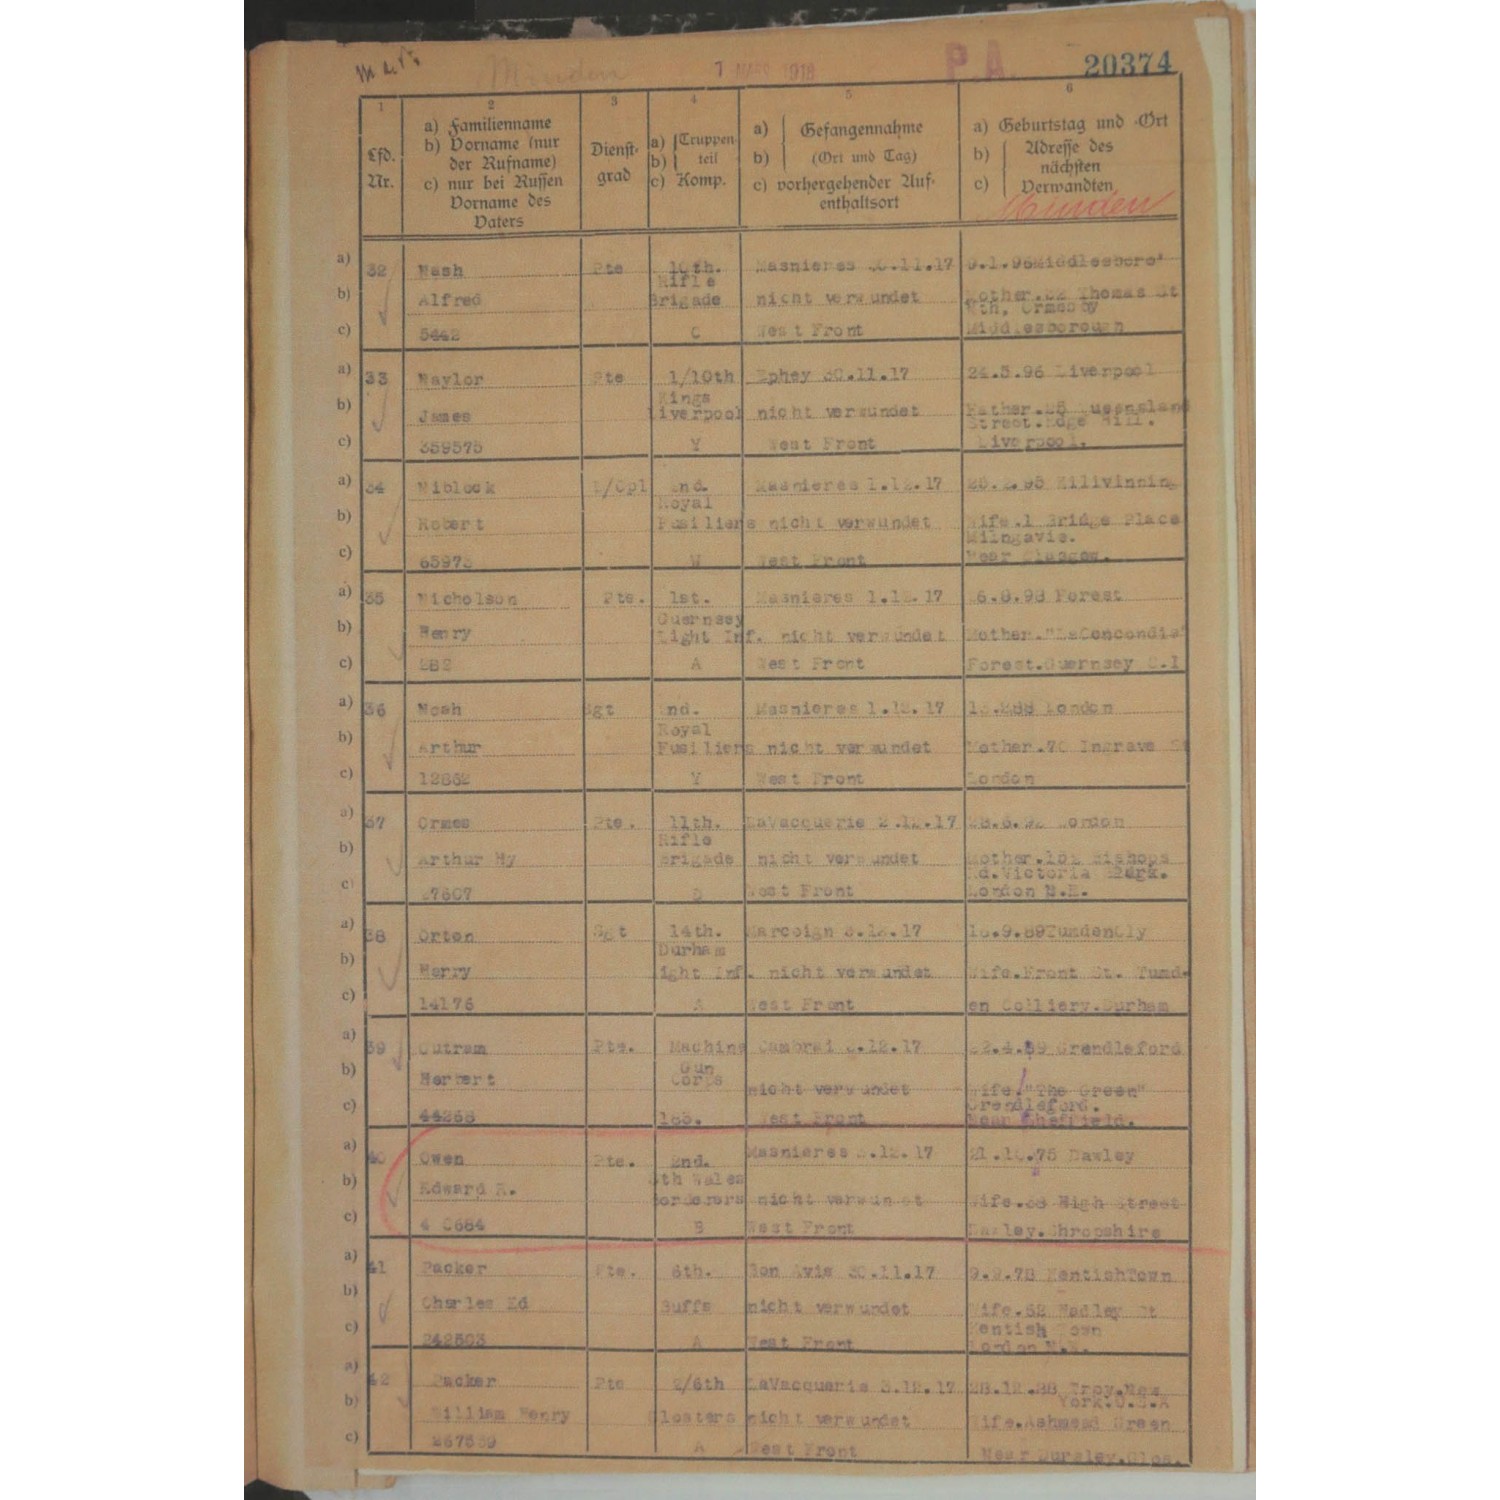 Minden
7 MARS 1918
P.A.
20374
1 2 3 4 5 6
Lfd. Nr.
a) Familienname
b) Vorname (nur der Rufname)
c) nur bei Russen Vorname des Vaters
Dienst-grad
a) Truppen-
b) teil
c) Komp.
a) Gefangennahme
b) (Ort und Tag)
c) vorhergehender Auf-enthaltsort
a) Geburtstag und -Ort
b) Adresse des nächsten
c) Verwandten
Minden
a) 32 Nash Pte 10th. Masnieres 30.11.17 9.1.96 Middlesboro'
Rifle
b) Alfred Brigade nicht verwundet Mother.52 Thomas St
Nth. Ormesby
c) 5442 C West Front Middlesborough
a) 33 Naylor Pte 1/10th Ephey 30.11.17 24.5.96 Liverpool
Kings
b) James Liverpool nicht verwundet Father.25 Queensland
Street.Edge Hill.
c) 359575 Y West Front Liverpool.
a) 34 Niblock L/Cpl 2nd. Masnieres 1.12.17 Kilivinning
Royal
b) Robert Fusiliers nicht verwundet Wife.1 Bridge Place
Milngavie.
c) 65973 W West Front Near Glasgow.
a) 35 Nicholson Pte. 1st. Masnieres 1.12.17 Forest
Guernsey
b) Henry Light Inf. nicht verwundet Mother."LaConcondia"
c) 282 A West Front Forest.Guernsey C.I
a) 36 Noah Sgt 2nd. Masnieres 1.12.17 London
Royal
b) Arthur Fusiliers nicht verwundet Mother.70 Ingrave St
c) 12862 Y West Front London
a) 37 Ormes Pte. 11th. LaVacquerie 2.12.17 London
Rifle
b) Arthur Hy Brigade nicht verwundet Mother. Bishops
Rd.Victoria Park.
c) 27607 West Front London N.E.
a) 38 Orton Sgt 14th. Marcoign 3.12.17
Durham
b) Harry Light Inf. nicht verwundet Wife.Front St. Tumd-
c) 14176 A West Front en Colliery.Durham
a) 39 Outram Pte. Machine Cambrai 3.12.17 22.4.89 Grendleford
b) Herbert Gun
Corps nicht verwundet Wife."The Green"
Grendleford.
c) 44268 West Front Near Sheffield.
a) 40 Owen Pte. 2nd. Masnieres 3.12.17 21.10.75 Dawley
b) Edward R. Sth Wales
Borderers nicht verwundet Wife.38 High Street
c) 4 0684 B West Front Dawley.Shropshire
a) 41 Packer Pte. 6th. Bon Avis 30.11.17 9.9.78 KentishTown
b) Charles Ed Buffs nicht verwundet Wife.52 Hadley St
Kentish Town
c) 242503 A West Front London N.W.
a) 42 Packer Pte 2/6th LaVacquerie 3.12.17 28.12.88 Troy.New
York.U.S.A
b) William Henry Glosters nicht verwundet Wife.Ashmead Green
c) 267539 A West Front Near Dursley.Glos.